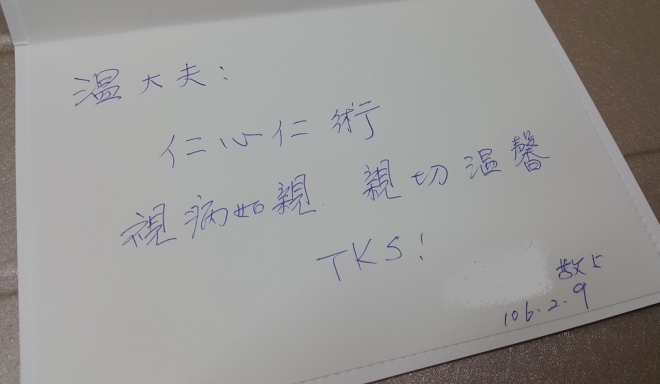 溫大夫：
仁心仁術
視病如親、親切溫馨
TKS!
敬上
106.2.9